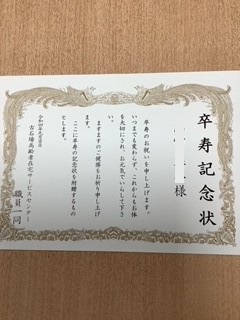 卒寿記念状
様
卒寿のお祝いを申し上げます。
いつまでも変わらず、これからもお体
を大切にされ、お元気でいらして下さ
い。
ますますのご健康をお祈り申し上げ
ます。
ここに卒寿の記念状を贈するもの
とします。
古石場高齢者在宅サービスセンター
職員一同